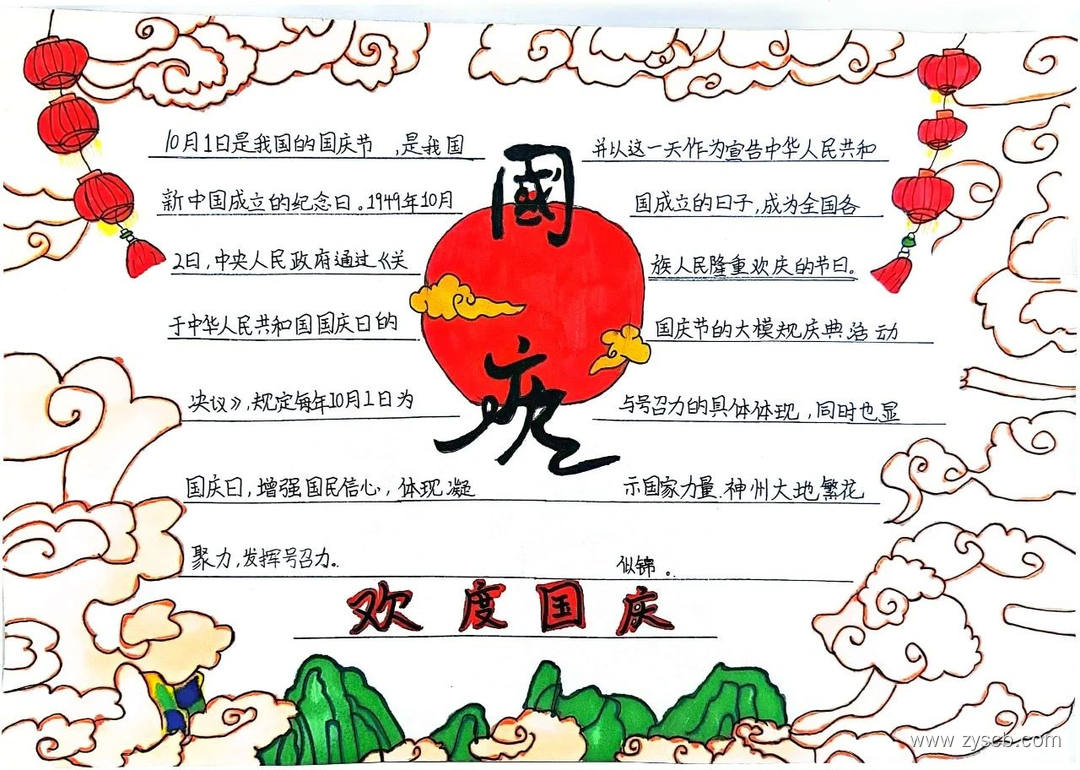 國
庆
10月1日是我国的国庆节，是我国
新中国成立的纪念日。1949年10月
2日，中央人民政府通过《关
于中华人民共和国国庆日的
决议》，规定每年10月1日为
国庆日，增强国民信心，体现凝
聚力，发挥号召力。
并以这一天作为宣告中华人民共和
国成立的日子，成为全国各
族人民隆重欢庆的节日。
国庆节的大模规庆典活动
与号召力的具体体现，同时也显
示国家力量.神州大地繁花
似锦。
欢度国庆
www.zyscb.com